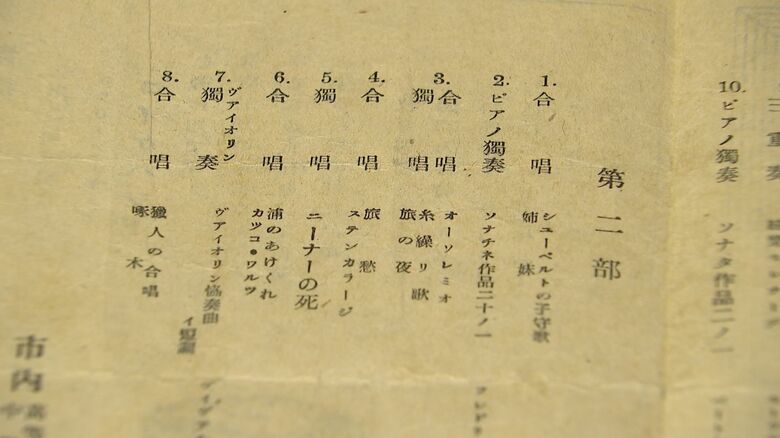 10.
ピアノ獨奏 ソナタ作品二ノ一
第二部
1.
合唱 シューベルトの子守歌
姉妹
2.
ピアノ獨奏 ソナチネ作品二十ノ一
3.
合唱 オーソレミオ
獨唱 糸繰リ歌
旅の夜
4.
合唱 旅愁
ステンカラージ
5.
獨唱 ニーナーの死
6.
合唱 浦のあけくれ
カツコ・ワルツ
7.
ヴアイオリン
獨奏 ヴアイオリン協奏曲
イ短調
8.
合唱 獵人の合唱
啄木
市内